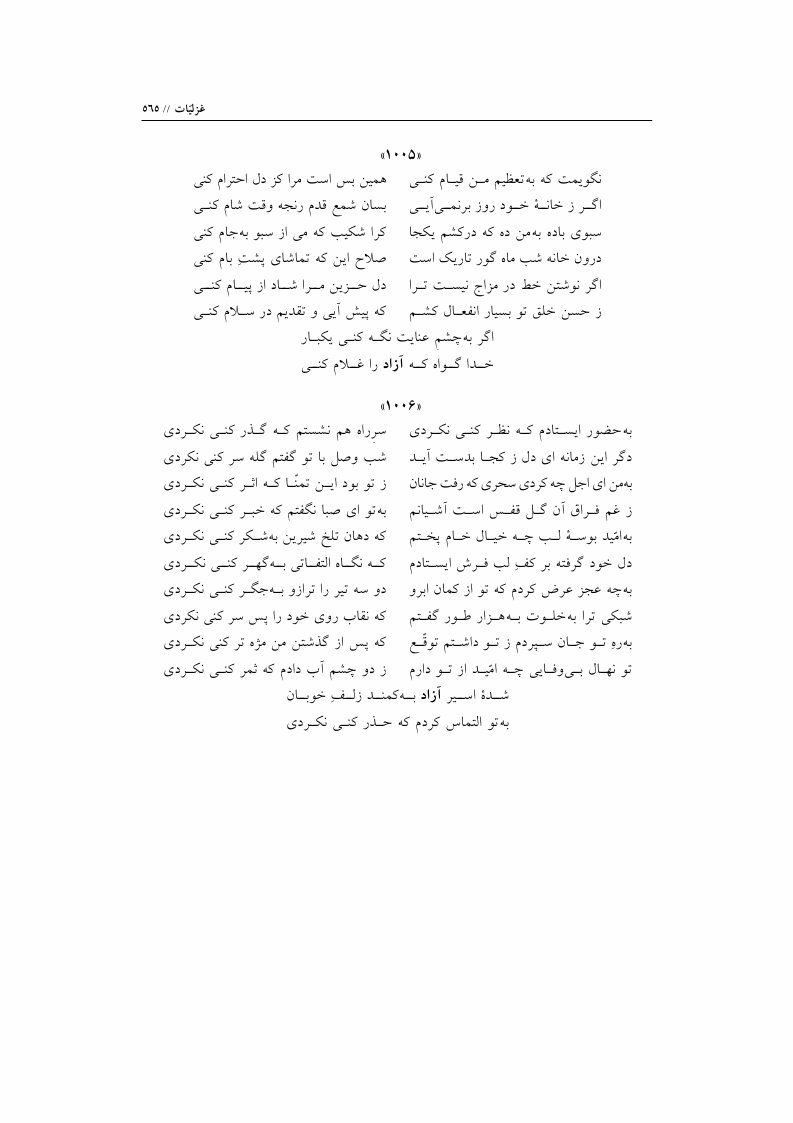 غزلیّات // ٥٦٥
«۱۰۰۵»
نگویمت که به‌تعظیم من قیام کنی همین بس است مرا کز دل احترام کنی
اگر ز خانهٔ خود روز برنمی‌آیی بسان شمع قدم رنجه وقت شام کنی
سبوی باده به‌من ده که درکشم یکجا کرا شکیب که می از سبو به‌جام کنی
درون خانه شب ماه گور تاریک است صلاح این که تماشای پشتِ بام کنی
اگر نوشتن خط در مزاج نیست ترا دل حزین مرا شاد از پیام کنی
ز حسن خلق تو بسیار انفعال کشم که پیش آیی و تقدیم در سلام کنی
اگر به‌چشمِ عنایت نگه کنی یکبار
خدا گواه که آزاد را غلام کنی
«۱۰۰۶»
به‌حضور ایستادم که نظر کنی نکردی سرِراه هم نشستم که گذر کنی نکردی
دگر این زمانه ای دل ز کجا بدست آید شب وصل با تو گفتم گله سر کنی نکردی
به‌من ای اجل چه کردی سحری که رفت جانان ز تو بود این تمنّا که اثر کنی نکردی
ز غم فراق آن گل قفس است آشیانم به‌تو ای صبا نگفتم که خبر کنی نکردی
به‌امّید بوسهٔ لب چه خیال خام پختم که دهان تلخ شیرین به‌شکر کنی نکردی
دل خود گرفته بر کفِ لب فرش ایستادم که نگاه التفاتی به‌گهر کنی نکردی
به‌چه عجز عرض کردم که تو از کمان ابرو دو سه تیر را ترازو به‌جگر کنی نکردی
شبکی ترا به‌خلوت به‌هزار طور گفتم که نقاب روی خود را پس سر کنی نکردی
به‌رهِ تو جان سپردم ز تو داشتم توقّع که پس از گذشتن من مژه تر کنی نکردی
تو نهال بی‌وفایی چه امّید از تو دارم ز دو چشم آب دادم که ثمر کنی نکردی
شدهٔ اسیر آزاد به‌کمند زلفِ خوبان
به‌تو التماس کردم که حذر کنی نکردی